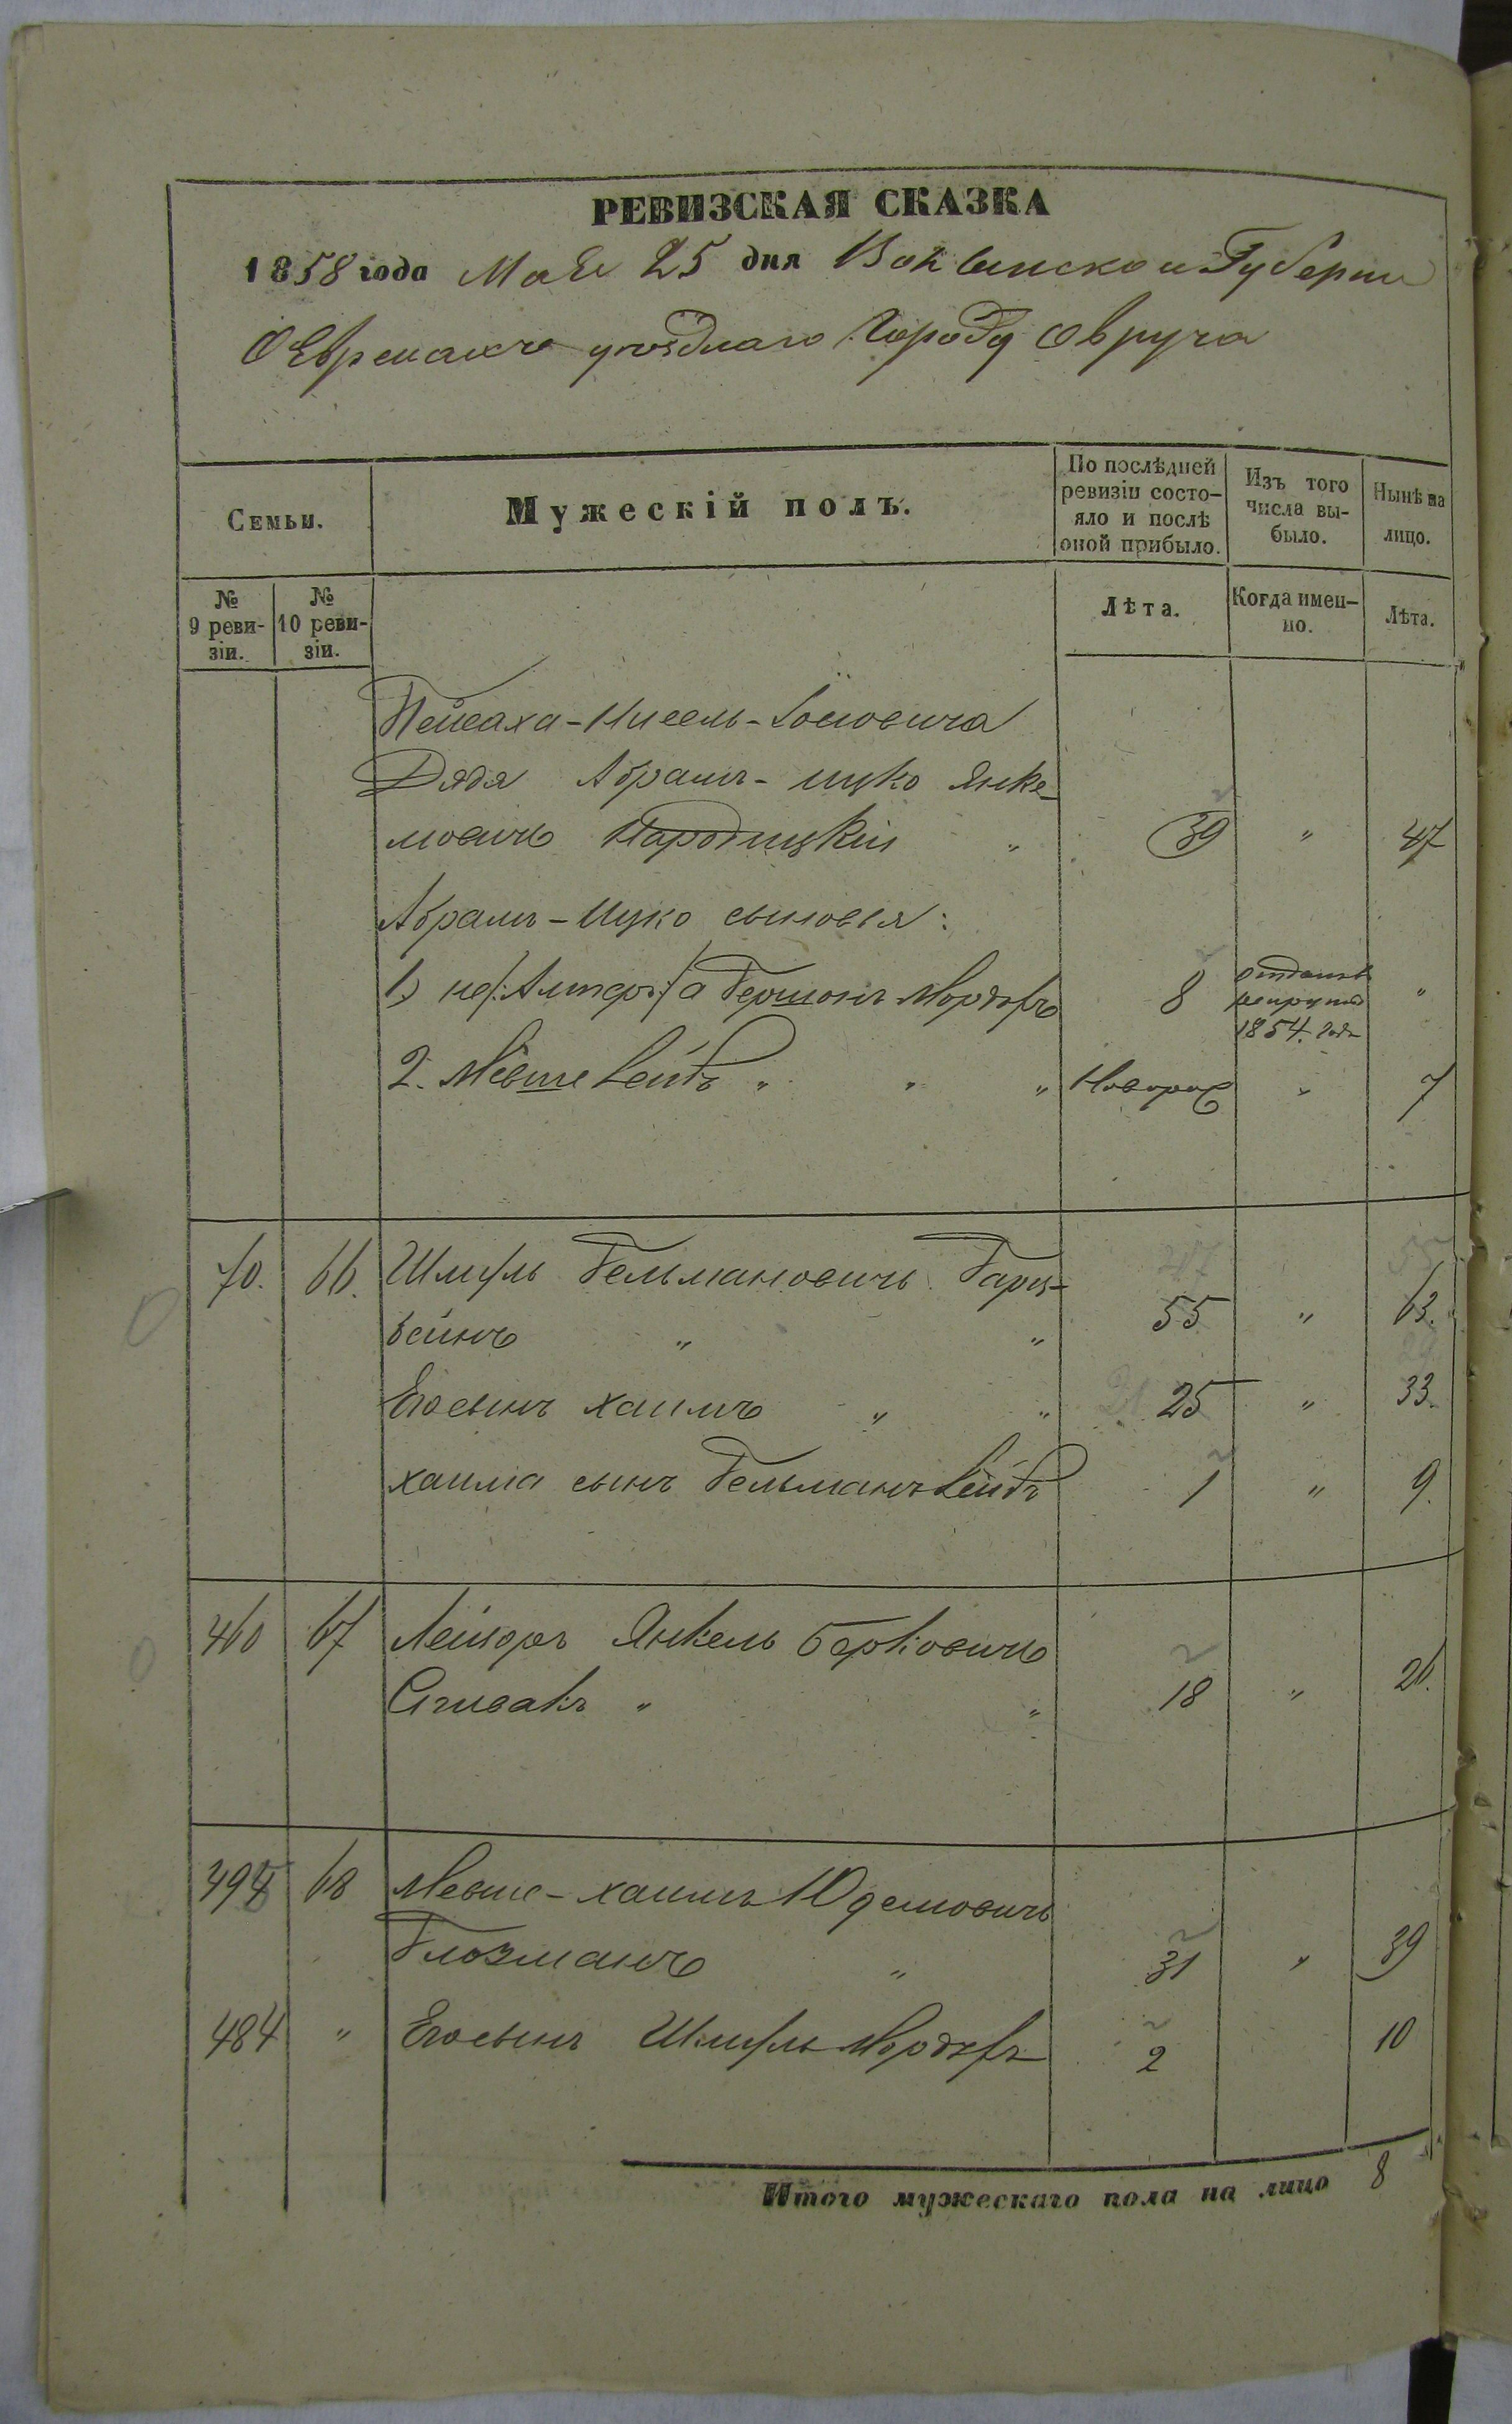 РЕВИЗСКАЯ СКАЗКА
1858 года Мая 25 дня Волынской Губернии
О Евреяхъ уѣзднаго города Овруча
Семьи.
Мужескій полъ.
По послѣдней ревизіи состояло и послѣ оной прибыло.
Изъ того числа выбыло.
Нынѣ на лицо.
№ 9 ревизіи.
№ 10 ревизіи.
Лѣта.
Когда именно.
Лѣта.
Пейсаха-Нисель-Іосіовича
Дядя Абрамъ-Ицко Янке-
ліовичъ Народицкій " 39 " 47
Абрамъ-Ицко сыновья:
1) не/:Алтеръ:/а Гершонъ Мордхъ 8 отданъ рекруты 1854. года "
2. Мевше Лейбъ " " " Новорож " 7
70. 66. Шмуль Гельмановичъ Гарц-
вейнъ " " 55 " 63.
Его сынъ Хаимъ " " 25 " 33.
Хаима сынъ Гельманъ Лейбъ 1 " 9.
460 67 Лейзоръ Янкель Берковичъ
Спивакъ " " 18 " 26.
494 68 Мевше-Хаимъ Юделіовичъ
Глозманъ " 31 " 39
484 " Его сынъ Шмуль Мордхъ 2 10
Итого мужескаго пола на лицо 8